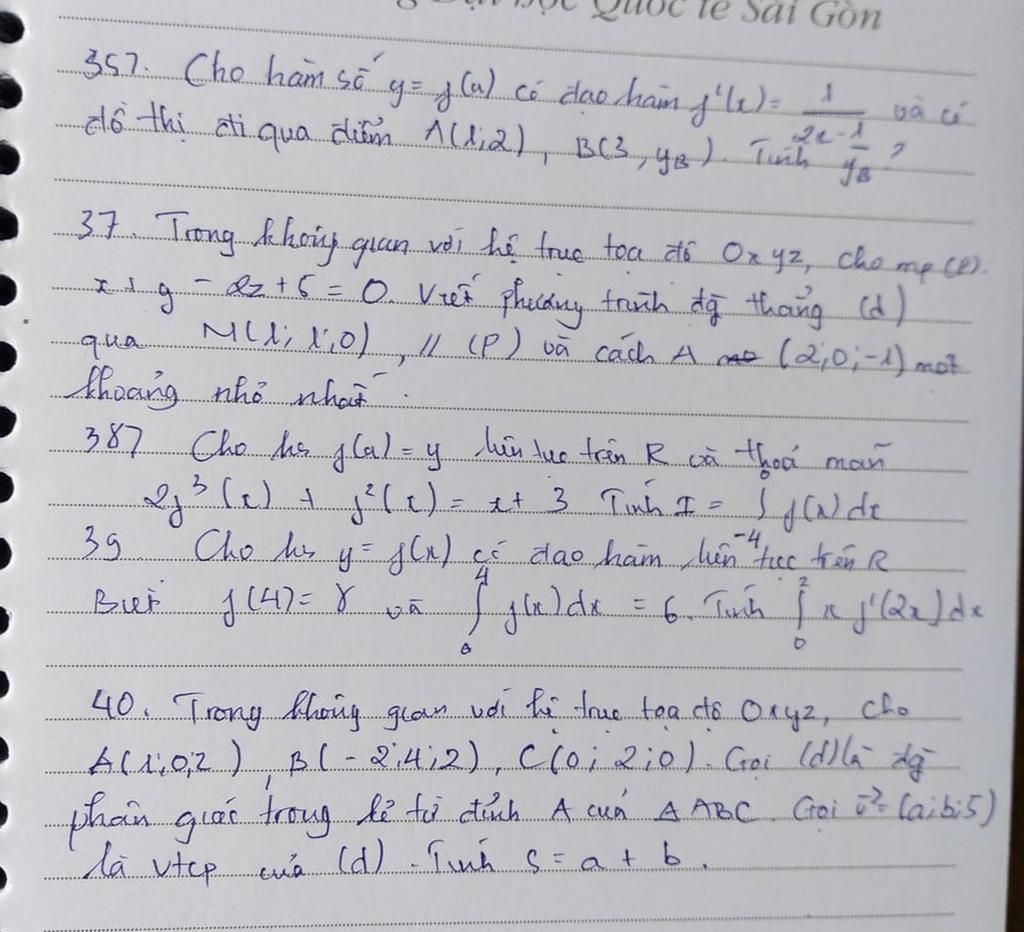 Đại học Quốc tế Sài Gòn
357. Cho hàm số y = f(x) có đạo hàm f'(x) = 1/(2x-1) và có
đồ thị đi qua điểm A(1;2), B(3, yB). Tính 1/yB?
37. Trong không gian với hệ trục tọa độ Oxyz, cho mp (P).
x + y - 2z + 5 = 0. Viết phương trình đg thẳng (d)
qua M(1; 1; 0), // (P) và cách A (2; 0; -1) một
khoảng nhỏ nhất.
387 Cho hs f(x) = y liên tục trên R và thoả mãn
2f³(x) + f²(x) = x + 3 Tính I = ∫₋₄⁰ f(x) dx
39 Cho hs y = f(x) có đạo hàm liên tục trên R
Biết f(4) = 8 và ∫₀⁴ f(x) dx = 6. Tính ∫₀² x f'(2x) dx
40. Trong không gian với hệ trục tọa độ Oxyz, cho
A(1; 0; 2), B(-2; 4; 2), C(0; 2; 0). Gọi (d) là đg
phân giác trong kẻ từ đỉnh A của Δ ABC. Gọi u⃗ = (a; b; 5)
là vtcp của (d). Tính S = a + b.